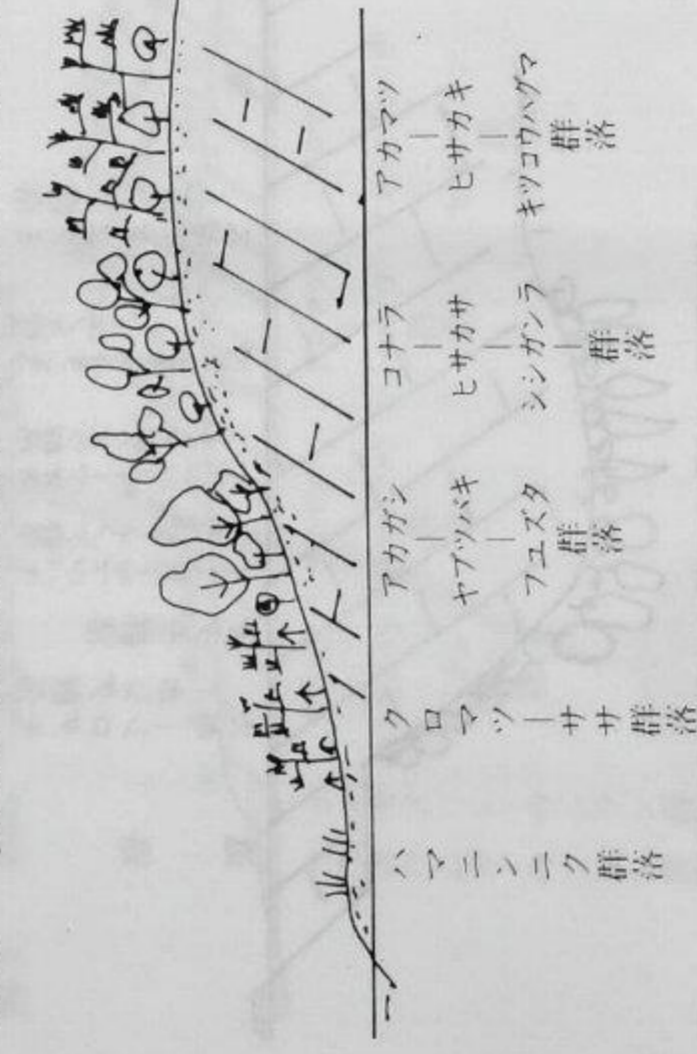 ハマニンニク群落
クロマツ―ササ群落
アカガシ
|
ヤブツバキ
|
フユズタ
群落
コナラ
|
ヒサカサ
|
シシガシラ
|
群落
アカマツ
|
ヒサカキ
|
キツコウハグマ
群落